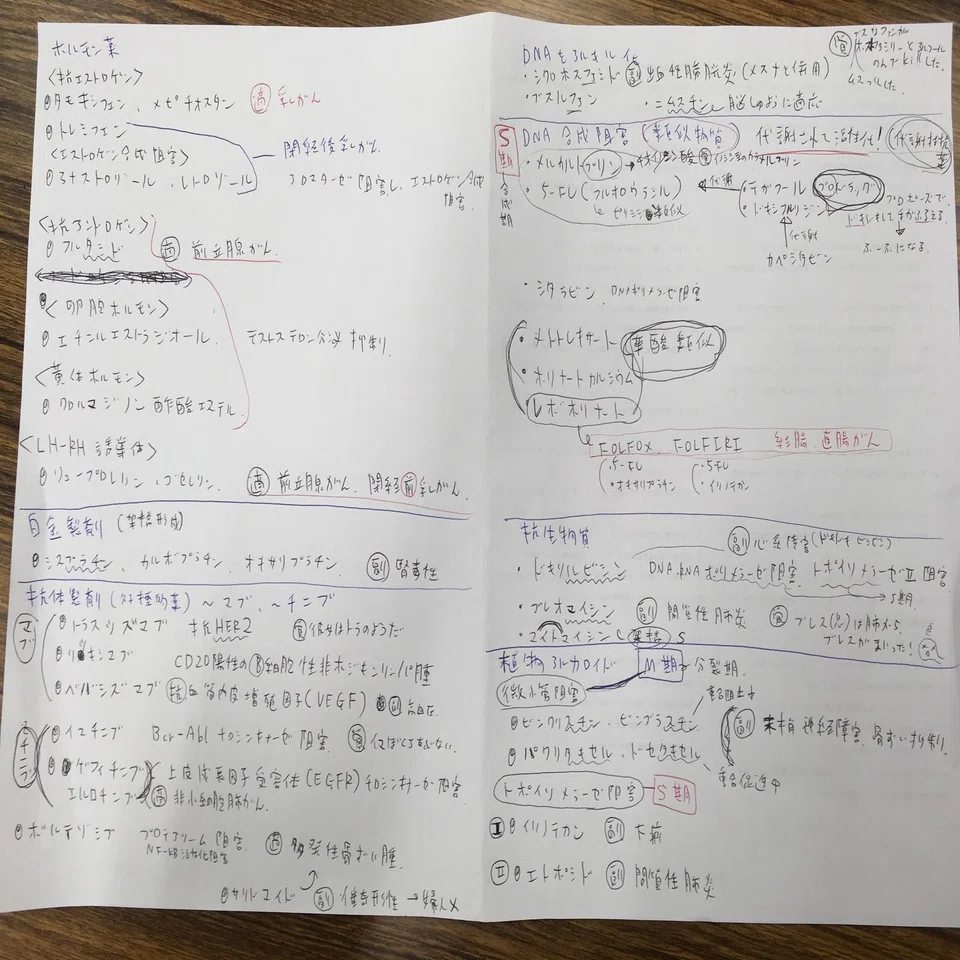 ホルモン薬
<抗エストロゲン>
タモキシフェン、メピチオスタン 適 乳がん
トレミフェン
閉経後乳がん
<エストロゲン合成阻害>
アナストロゾール、レトロゾール
アロマターゼ阻害し、エストロゲン合成阻害。
<抗アンドロゲン>
フルタミド 適 前立腺がん
<卵胞ホルモン>
エチニルエストラジオール. テストステロン分泌抑制.
<黄体ホルモン>
クロルマジノン酢酸エステル.
<LH-RH 誘導体>
リュープロレリン、ゴセレリン. 適 前立腺がん、閉経前乳がん.
白金製剤 (架橋形成)
シスプラチン、カルボプラチン、オキサリプラチン 副 腎毒性
抗体製剤 (分子標的薬) ~マブ、~チニブ
マブ
トラスツズマブ 抗HER2
リツキシマブ CD20陽性のB細胞性非ホジキンリンパ腫
ベバシズマブ 抗血管内皮増殖因子(VEGF) 副 高血圧.
チニブ
イマチニブ Bcr-Abl チロシンキナーゼ 阻害
ゲフィチニブ
エルロチニブ
上皮成長因子受容体(EGFR)チロシンキナーゼ阻害.
適 非小細胞肺がん.
ボルテゾミブ プロテアソーム 阻害. 適 多発性骨ずい腫
NF-κB活性化阻害
サリドマイド 副 催奇形性 →婦人×
DNAをアルキル化
・シクロホスファミド 副 出血性膀胱炎(メスナと併用)
・ブスルファン ・ニムスチン 脳しゅように適応
S期 合成期
DNA 合成阻害 (類似物質) 代謝されて活性化! 代謝拮抗薬
・メルカプトプリン
・5-FU(フルオロウラシル) 代謝 ・テガフール プロドラッグ
・ドキシフルリジン
ピリミジン類似
代謝
カペシタビン
プロポーズで、
ドキドキして手がふるえる.
ふーふになる.
・シタラビン DNAポリメラーゼ阻害.
・メトトレキサート 葉酸類似
・ホリナートカルシウム
・レボホリナート
FOLFOX、FOLFIRI 結腸、直腸がん
・5-FU
・オキサリプラチン
・5-FU
・イリノテカン
抗生物質
副 心毒障害(ドキドキビンビン)
・ドキソルビシン DNA・RNAポリメラーゼ阻害、トポイソメラーゼⅡ阻害
S期.
・ブレオマイシン 副 間質性肺炎
ブレスがまいった!
・マイトマイシンC 架橋 S
植物アルカロイド M期 分裂期.
微小管阻害
重合阻止
ビンクリスチン、ビンブラスチン
パクリタキセル、ドセタキセル
副 末梢神経障害、骨ずい抑制.
重合促進
トポイソメラーゼ阻害 S期
Ⅰ イリノテカン 副 下痢
Ⅱ エトポシド 副 間質性肺炎